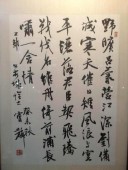 野曠呂蒙營江深劉備
城寒天催日短風浪与雲
平灑落君臣契飛騰
戰伐名維舟倚前浦長
嘯一含情